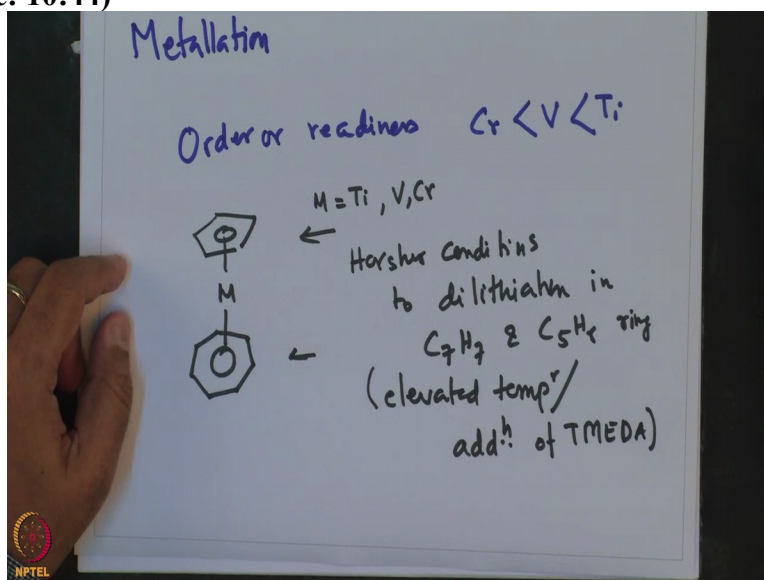 c. 10:44)
Metallation
Order or readiness Cr < V < Ti
M = Ti, V, Cr
M
Harsher conditins
to dilithiatn in
C7H7 & C5H5 ring
(elevated tempr/
addn. of TMEDA)
NPTEL